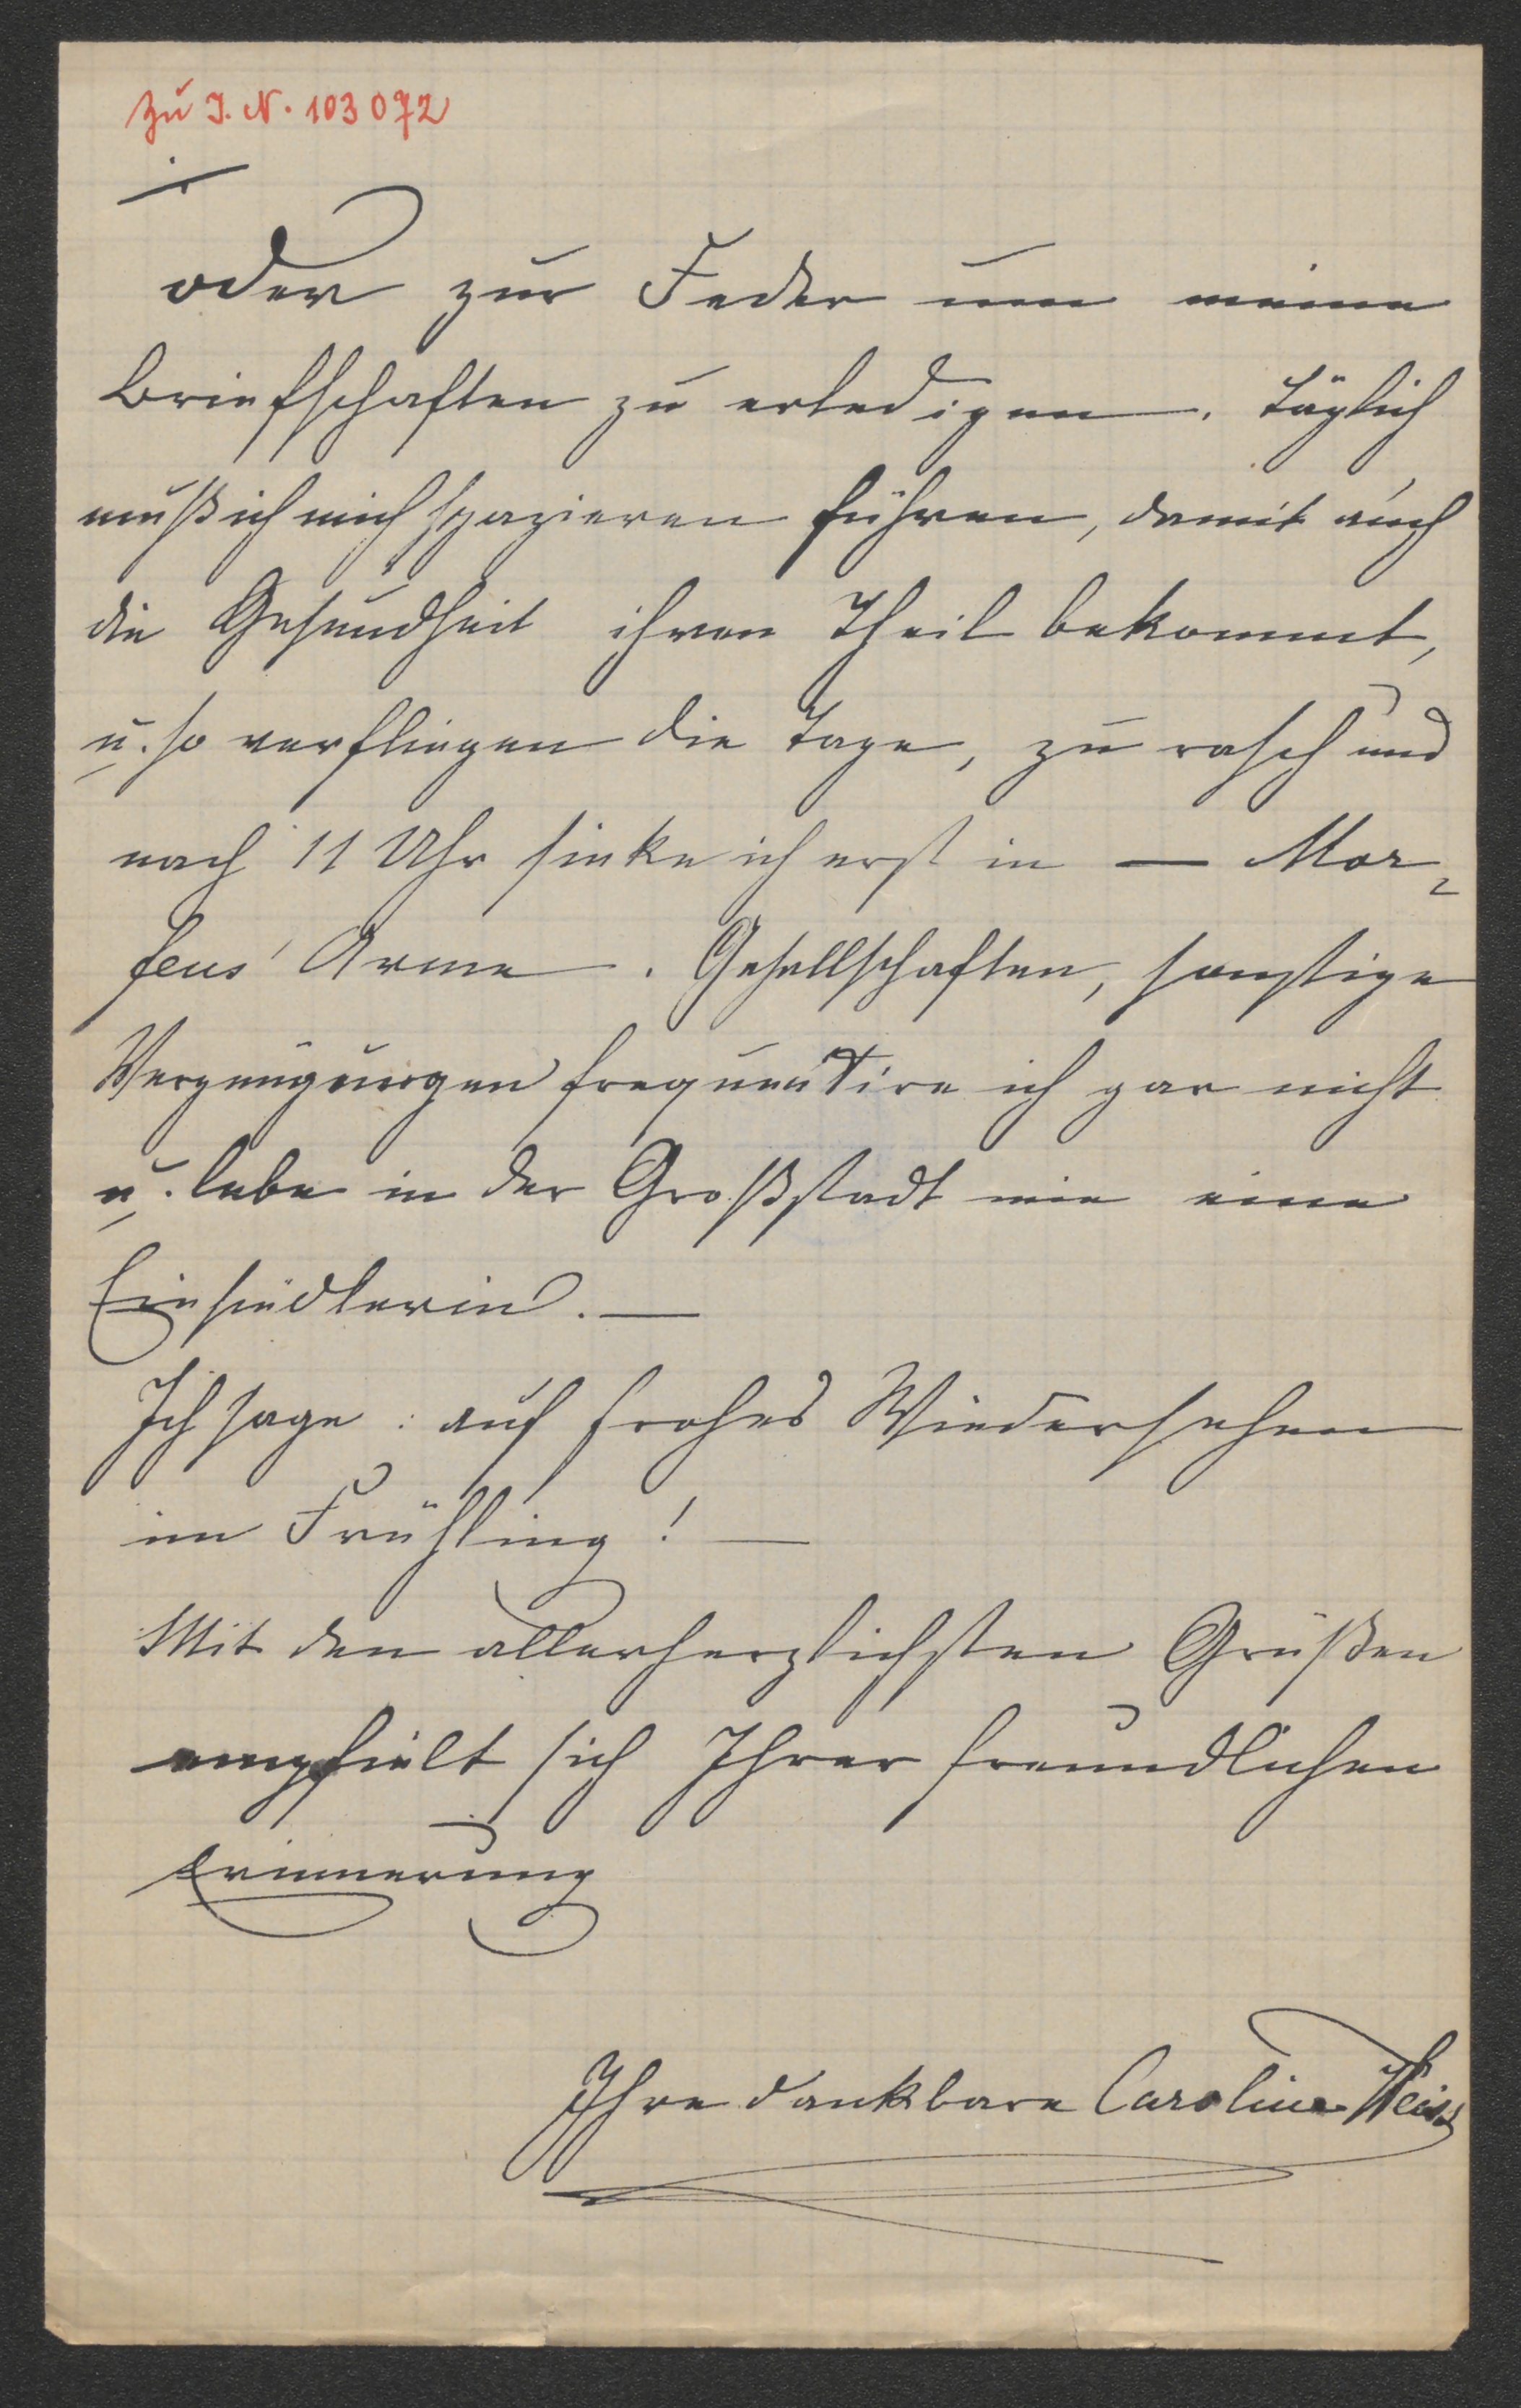 Zu J. N. 103072
./.
oder zur Feder um meine
Briefschaften zu erledigen. Täglich
muß ich mich spazieren führen, damit auch
die Gesundheit ihren Theil bekommt,
u. so verfliegen die Tage, zu rasch und
nach 11 Uhr sinke ich erst in — Mor-
feus' Arme. Gesellschaften, sonstige
Vergnügungen frequentire ich gar nicht
u. lebe in der Großstadt wie eine
Einsiedlerin. —
Ich sage: auf frohes Wiedersehen
im Frühling! —
Mit den allerherzlichsten Grüßen
empfielt sich Ihrer freundlichen
Erinnerung
Ihre dankbare Caroline Weiss